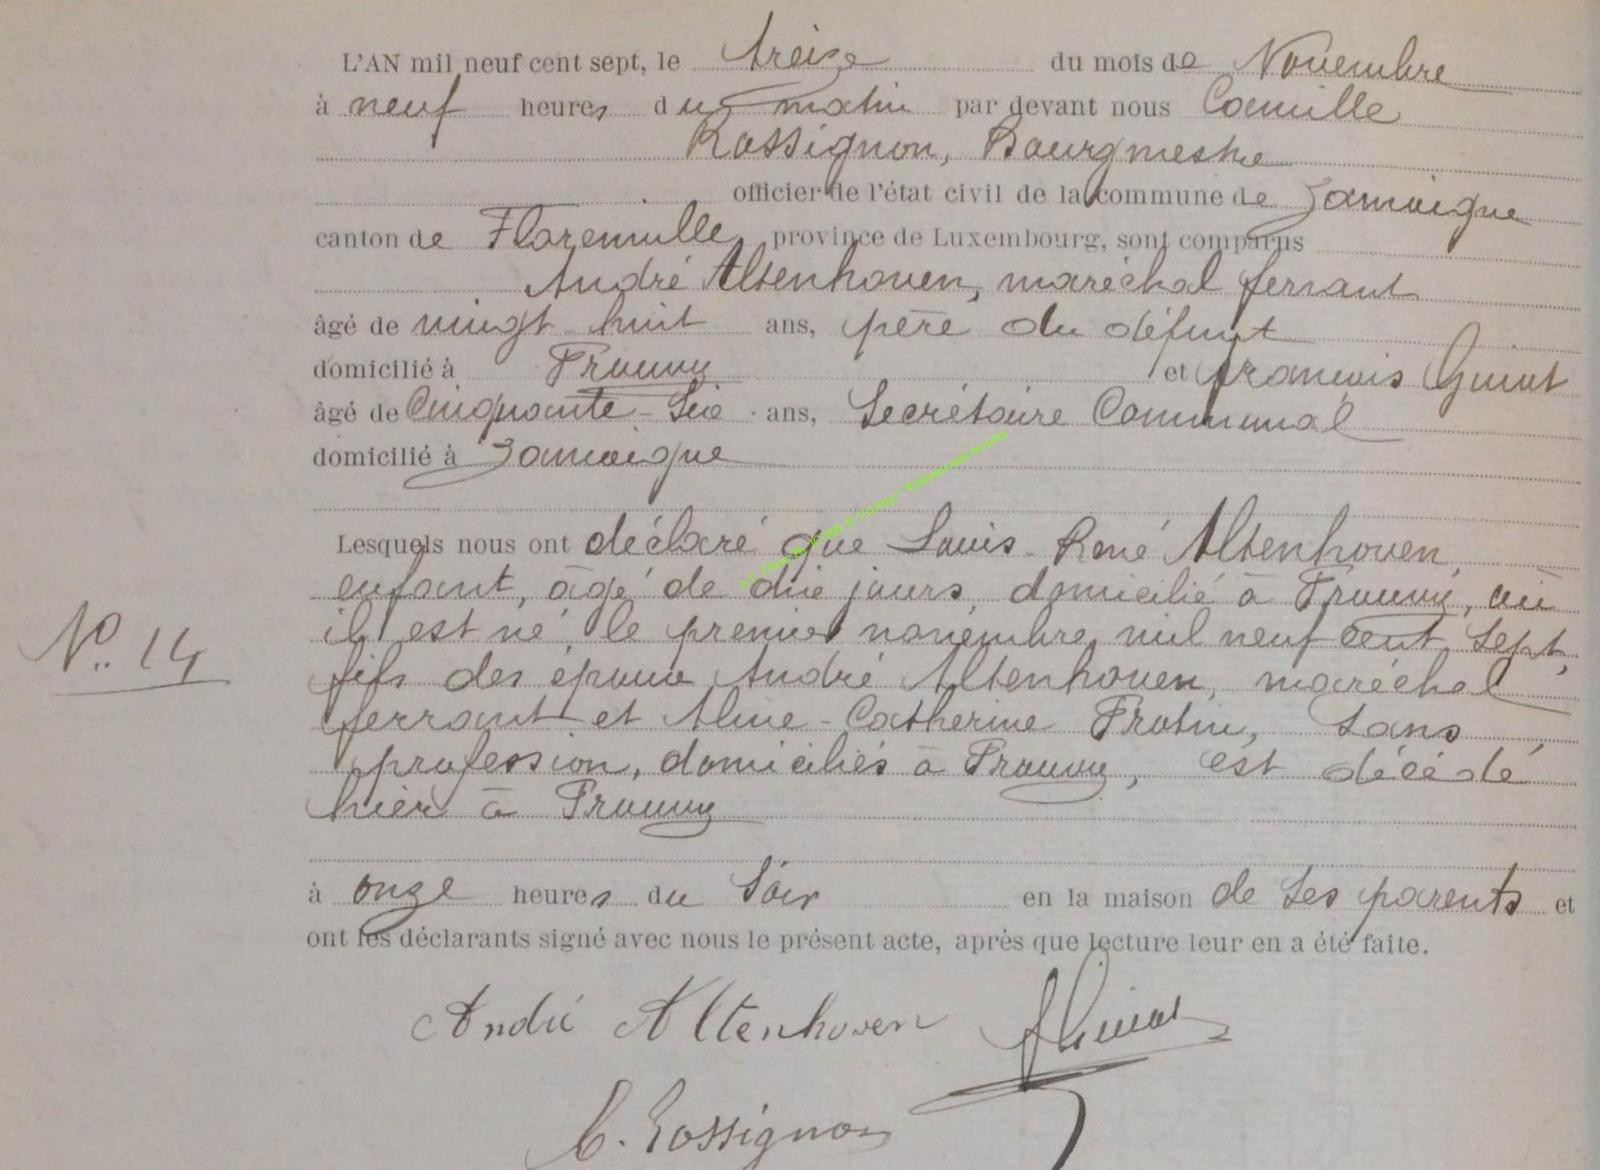 L'AN mil neuf cent sept, le treize du mois de Novembre
à neuf heures du matin par devant nous Camille
Rossignon, Bourgmestre
officier de l'état civil de la commune de Jamoigne
canton de Florenville, province de Luxembourg, sont comparus
André Altenhoven, maréchal ferrant
âgé de vingt huit ans, père du défunt
domicilié à Prouvy et françois
âgé de Cinquante-Six ans, Secrétaire Communal
domicilié à Jamoigne
Lesquels nous ont déclaré que Louis-René Altenhoven,
enfant, âgé de dix jours, domicilié à Prouvy, où
N° 14
il est né, le premier novembre mil neuf cent sept,
fils des époux André Altenhoven, maréchal
ferrant et Aline-Catherine Frotin, sans
profession, domiciliés à Prouvy, est décédé
hier à Prouvy
à onze heures du soir en la maison de ses parents et
ont les déclarants signé avec nous le présent acte, après que lecture leur en a été faite.
André Altenhoven
C. Rossignon